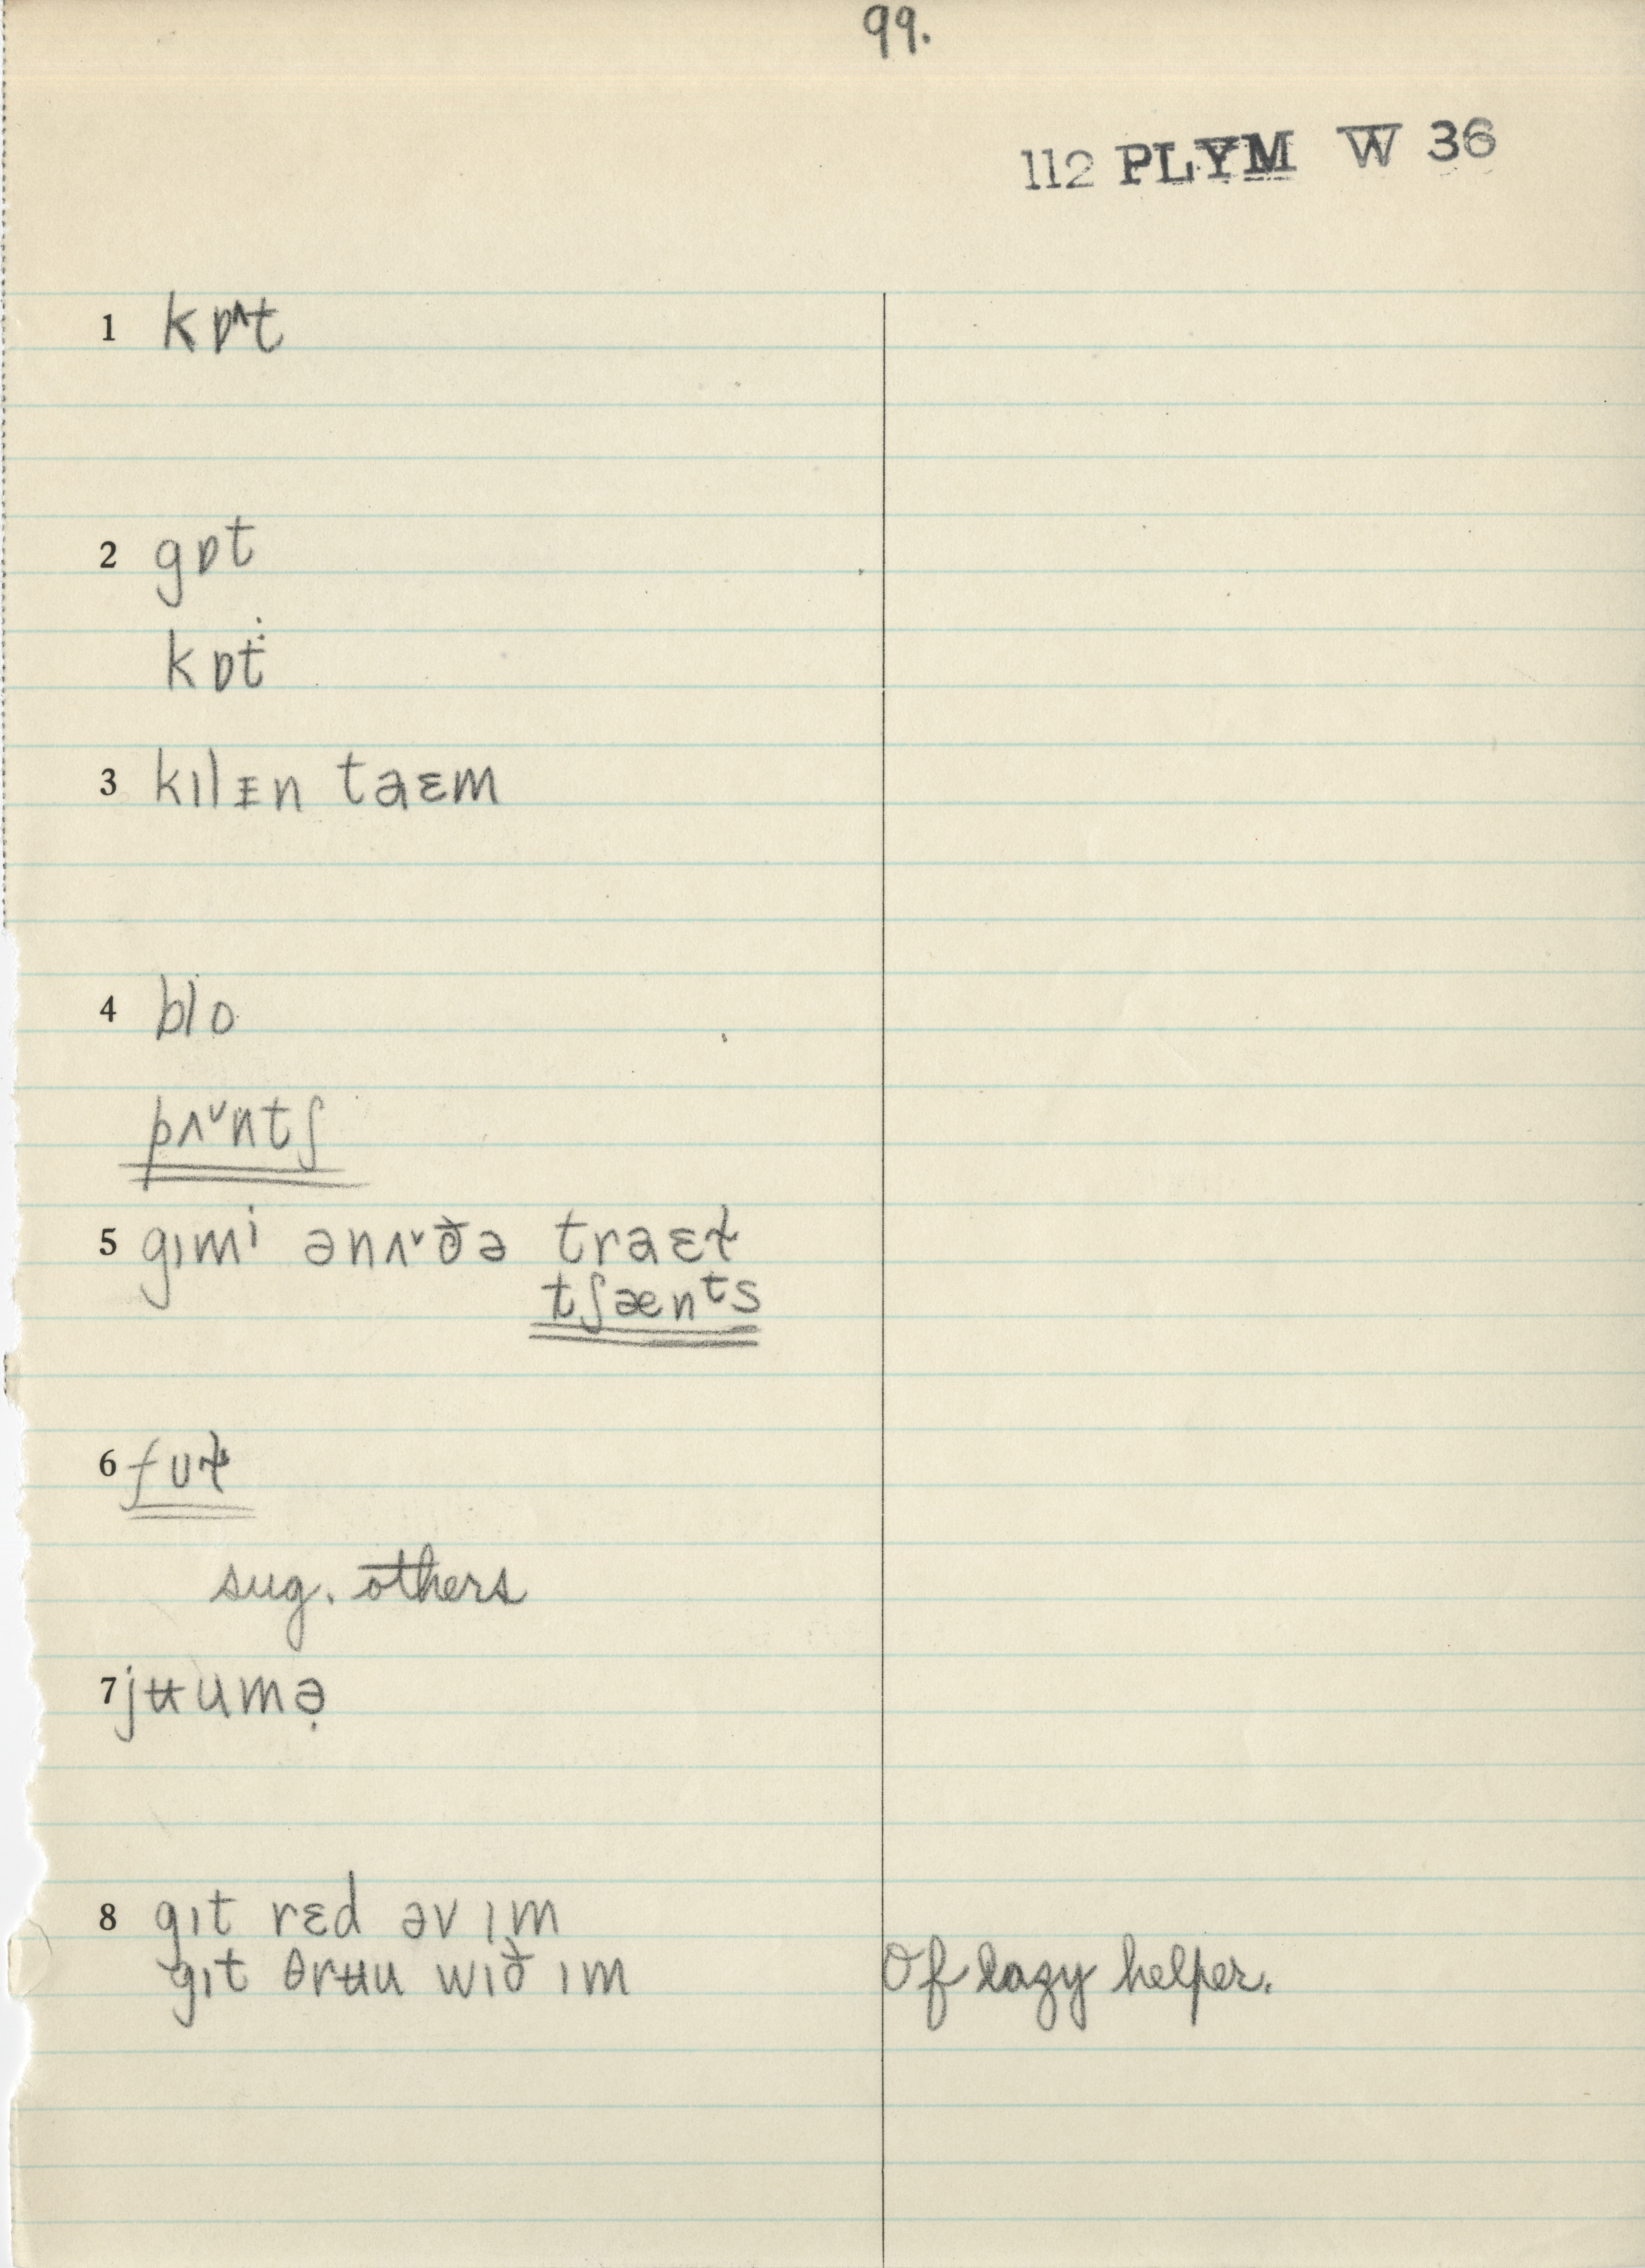 99.
112 PLYM W 36
1 kɒ^t
2 gɒt
kɒt
3 kɪlᵻn taɛm
4 blo
pʌˇntʃ
5 gɪmi ənʌˇðə traɛt̬
tʃænᵗs
6 fʊt̬
sug. others
7 jʉumə̣
8 gɪt rɛd əv ɪm
gɪt θrʉu wɪð ɪm
Of lazy helper.